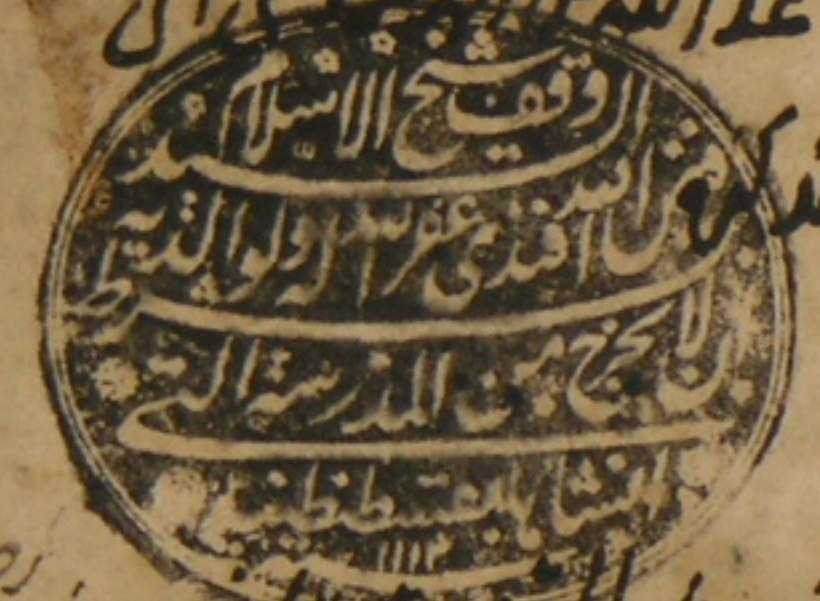 وقف شيخ الاسلام السيد
فيض الله افندى غفر الله له ولوالديه بشرط
ان لا يخرج من المدرسة التى
انشاها بقسطنطينيه
١١١٢